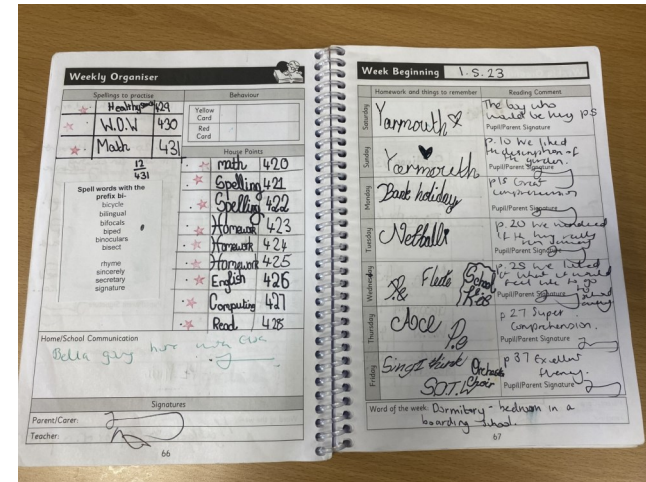 Weekly Organiser
Spellings to practise
Behaviour
Healthy 429
W.O.W 430
Math 431
12
431
Yellow
Card
Red
Card
Spell words with the
prefix bi-
bicycle
bilingual
bifocals
biped
binoculars
bisect
rhyme
sincerely
secretary
signature
House Points
math 420
Spelling 421
Spelling 422
Homework 423
Homework 424
Homework 425
English 426
Computing 427
Read 428
Home/School Communication
Bella going home with
Signatures
Parent/Carer:
Teacher:
66
Week Beginning 1.5.23
Homework and things to remember
Reading Comment
Saturday
Yarmouth
The boy who
would be king p5
Pupil/Parent Signature
Sunday
Yarmouth
p.10 We liked
the description of
the garden.
Pupil/Parent Signature
Monday
Bank holiday
p15 Great
comprehension
Pupil/Parent Signature
Tuesday
Netball
p.20 we wondered
if the boy really
Pupil/Parent Signature
Wednesday
P.E
School
p.25 we
what it would
feel like to go
Pupil/Parent Signature
Thursday
P.E
p 27 Super
Comprehension.
Pupil/Parent Signature
Friday
Sing I think
Orchestra
Choir
p 37 Excellent
fluency.
Pupil/Parent Signature
Word of the week: Dormitory - bedroom in a
boarding school.
67